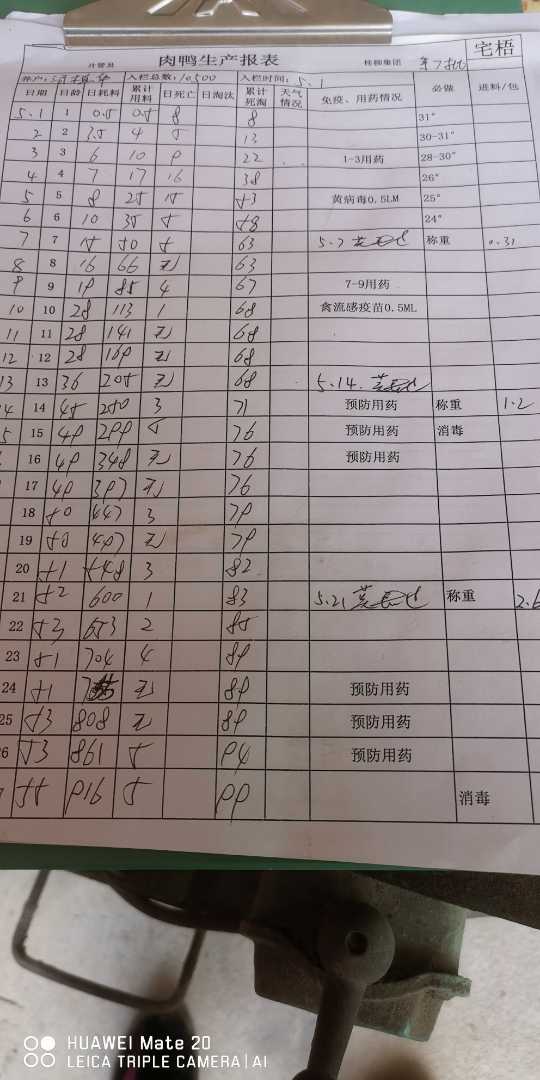 宅梧
开管县 肉鸭生产报表 桂柳集团 第7批
养户: 入栏总数:10500 入栏时间:5.1
日期 日龄 日耗料 累计用料 日死亡 日淘汰 累计死淘 天气情况 免疫、用药情况 必做 进料/包
5.1 1 0.5 0.5 8 8 31°
2 2 3.5 4 5 13 30-31°
3 3 6 10 9 22 1-3用药 28-30°
4 4 7 17 16 38 26°
5 5 8 25 15 53 黄病毒0.5LM 25°
6 6 10 35 5 58 24°
7 7 15 50 5 63 5.7 称重 0.31
8 8 16 66 无 63
9 9 19 85 4 67 7-9用药
10 10 28 113 1 68 禽流感疫苗0.5ML
11 11 28 141 无 68
12 12 28 169 无 68
13 13 36 205 无 68 5.14.
14 45 250 3 71 预防用药 称重 1.2
15 49 299 5 76 预防用药 消毒
16 49 348 无 76 预防用药
17 49 397 无 76
18 50 447 3 79
19 50 497 无 79
20 51 548 3 82
21 52 600 1 83 5.21 称重 2.6
22 53 653 2 85
23 51 704 4 89
24 51 无 89 预防用药
25 53 808 无 89 预防用药
26 53 861 5 94 预防用药
55 916 5 99 消毒
HUAWEI Mate 20
LEICA TRIPLE CAMERA | AI